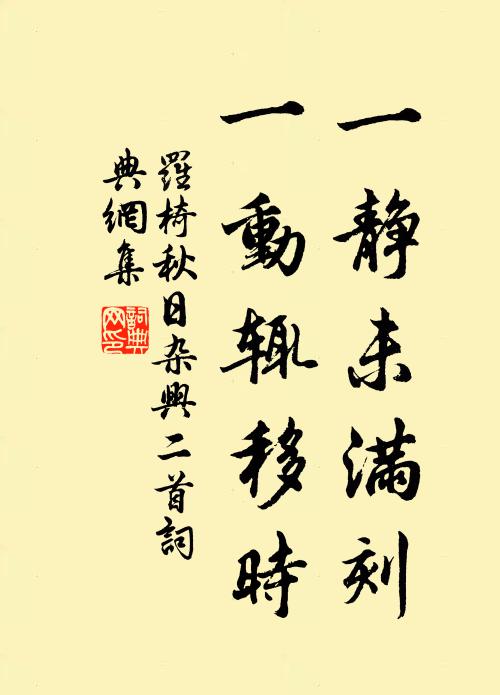 一静未满刻
一動辄移時
羅椅秋日杂興二首詞
典網集
詞典
网印